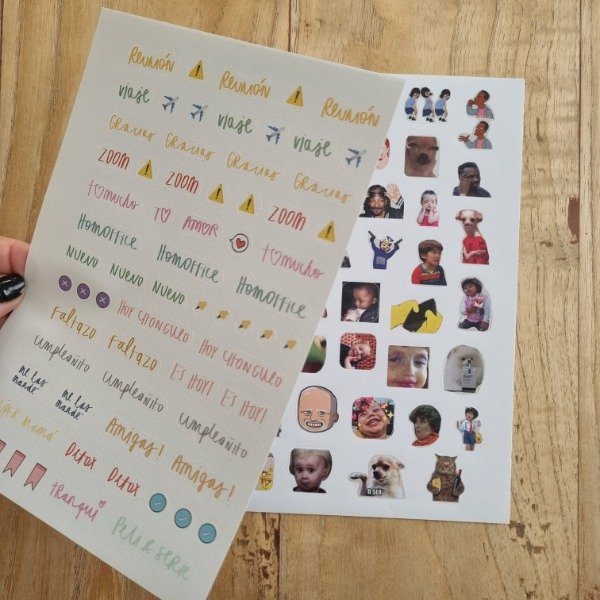 Reunión Reunión Reunión
Viaje Viaje Viaje
Gracias Gracias Gracias Gracias
ZOOM ZOOM ZOOM
TQ mucho TQ AMOR TQ mucho
HomOffice HomOffice HomOffice
NUEVO NUEVO NUEVO
HOY CHONGUEO HOY CHONGUEO
Faltazo Faltazo ES HOY! ES HOY!
Cumpleañito Cumpleañito Cumpleañito
ME LAS MANDÉ ME LAS MANDÉ
SÚPER MAMÁ Amigas! Amigas!
Detox Detox
Tranqui
Peli & SERIE
O SEA